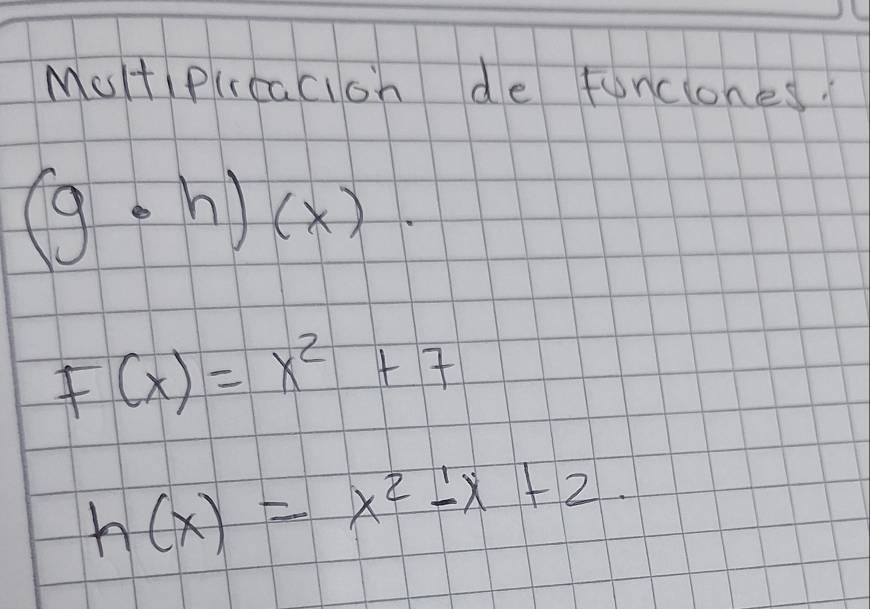 Multiplicación de funciones:
(g • h) (x).
F(x) = x² + 7
h(x) = x² - x + 2.